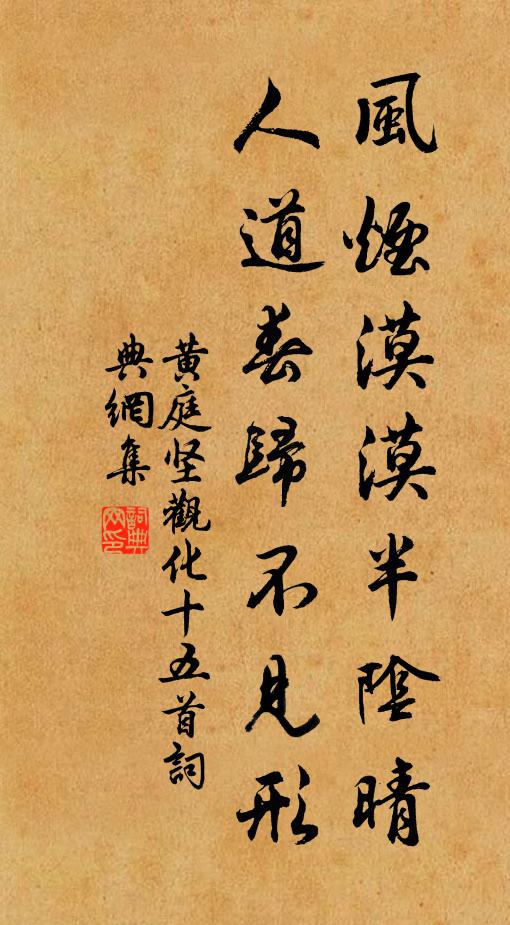 風煙漠漠半陰晴
人道春歸不見形
黄庭坚觀化十五首詞
典網集
詞典網印